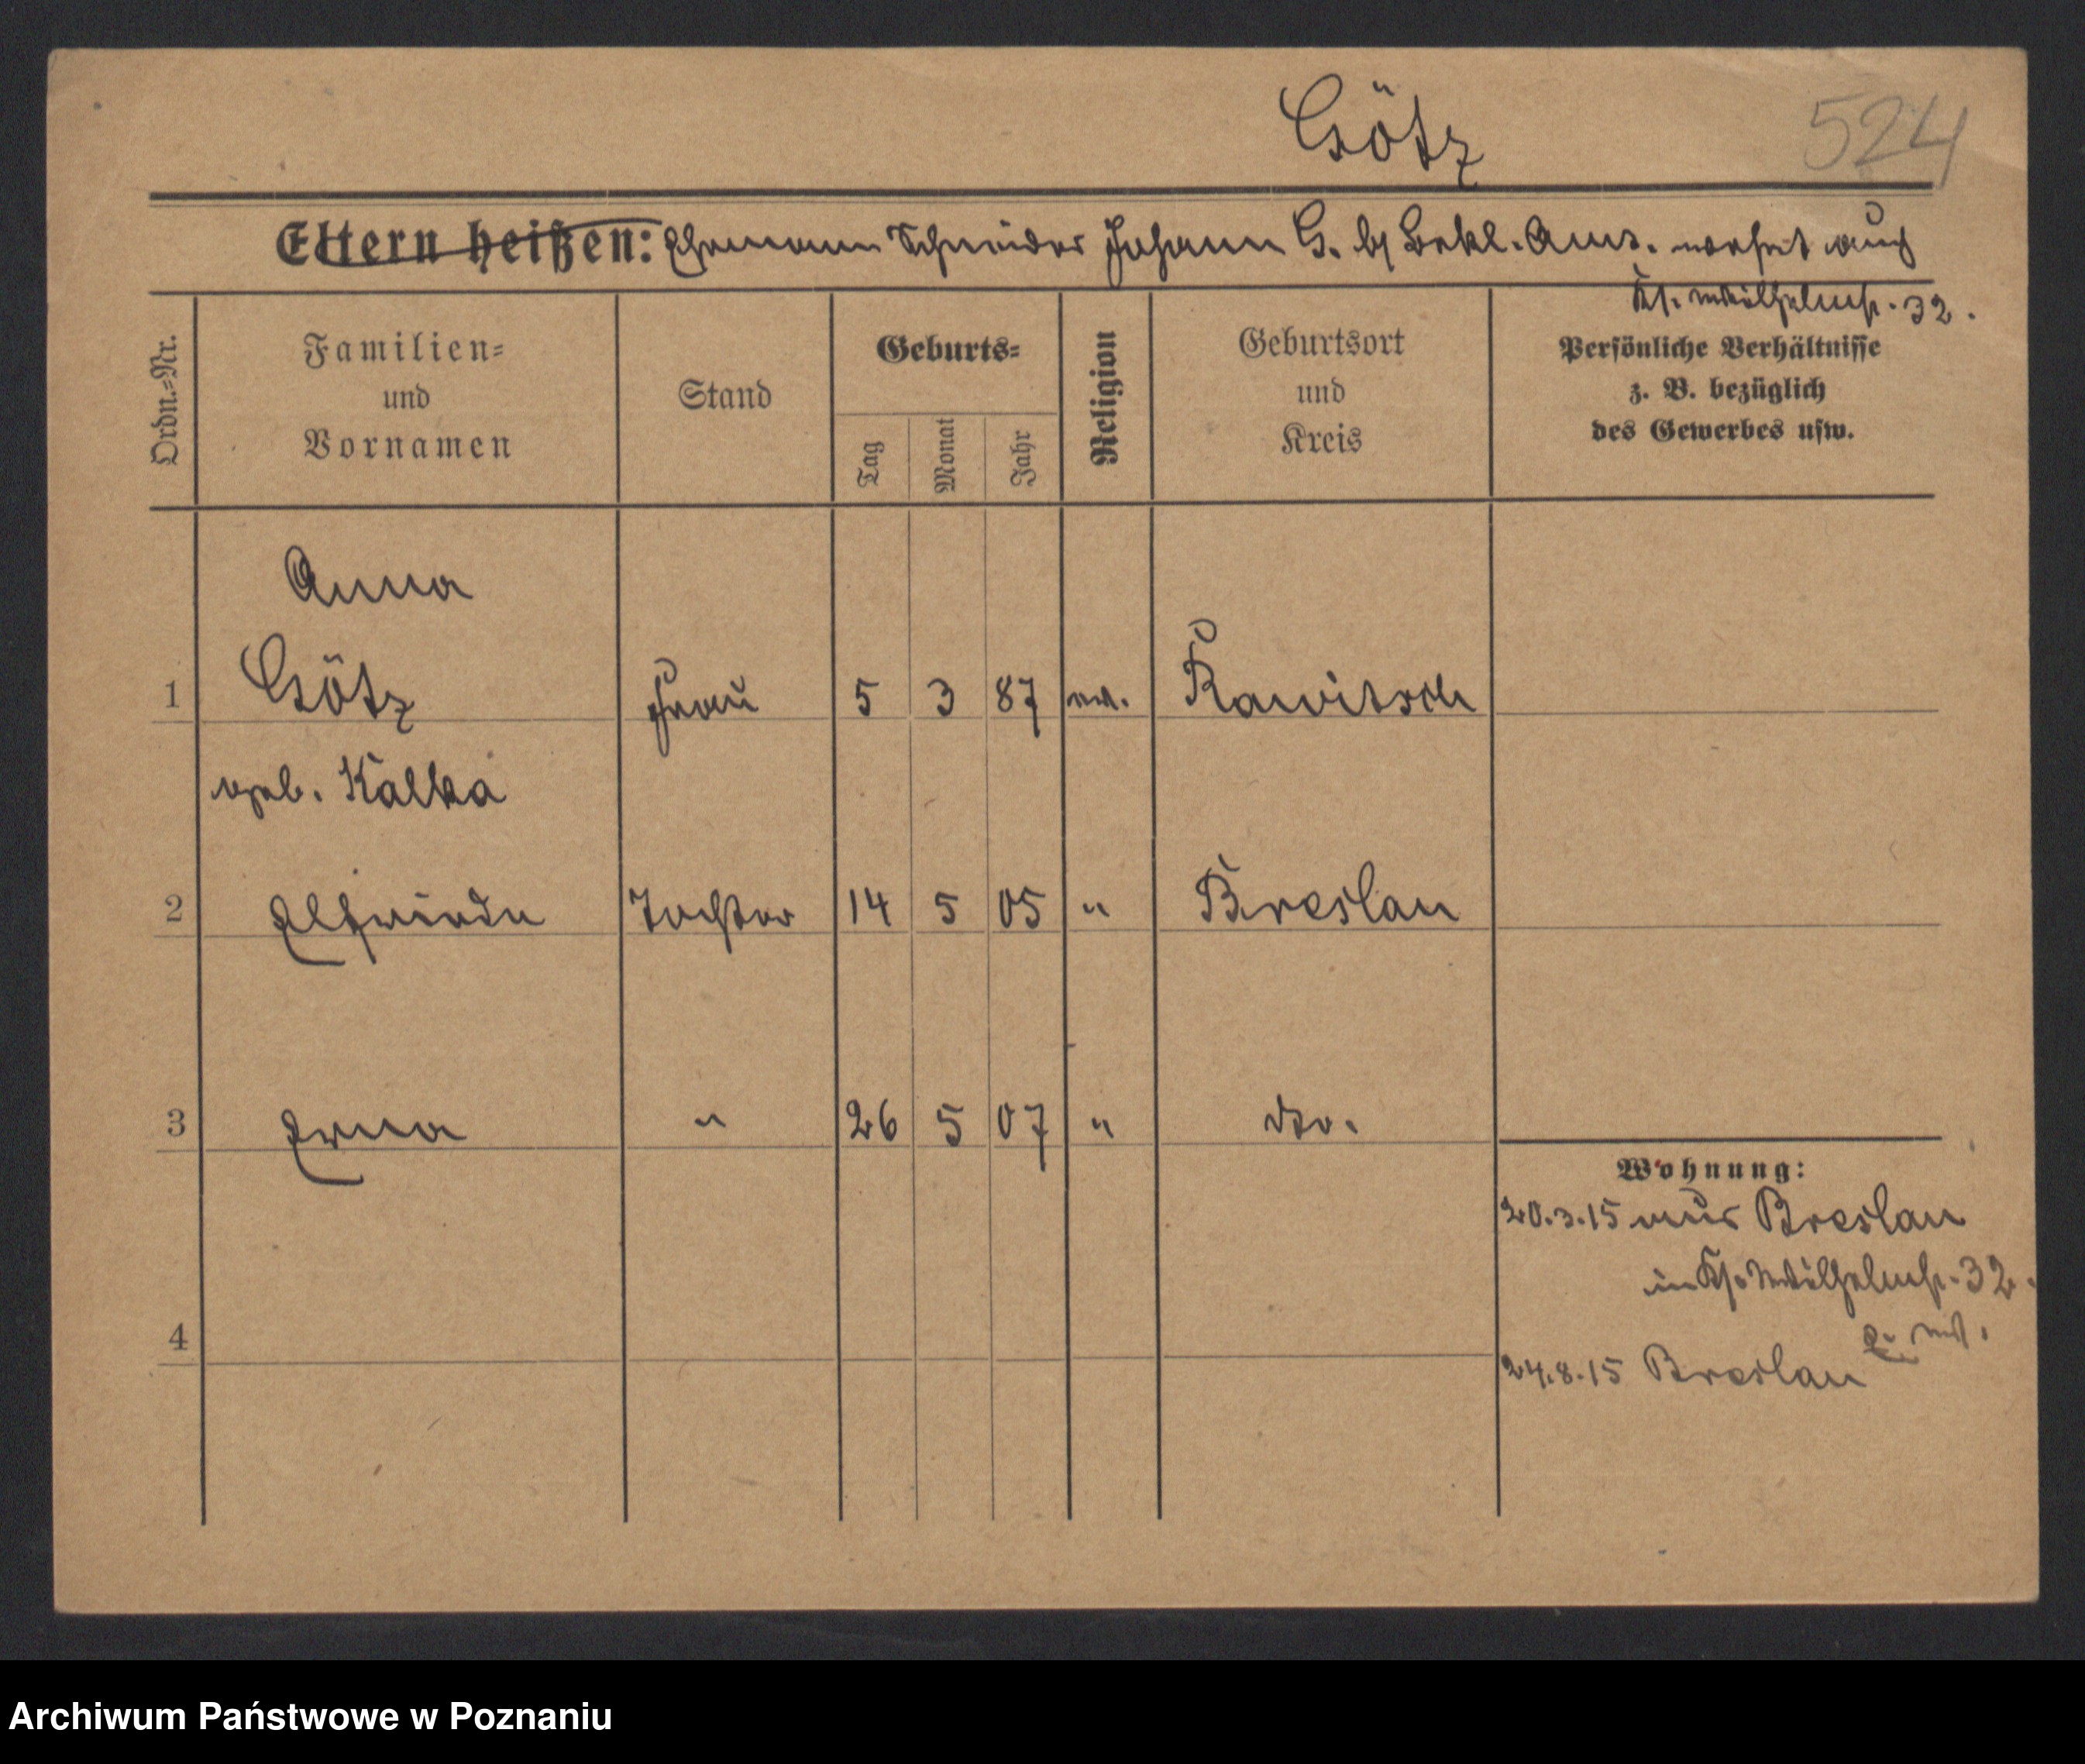 Götz 524
Eltern heißen: Ehemann Schneider Johann G. b/ Bekl. Amt. wohnt auch
Kl. Wilhelmst. 32.
Ordn.-Nr. Familien- und Vornamen Stand Geburts- Tag Monat Jahr Religion Geburtsort und Kreis Persönliche Verhältnisse z. B. bezüglich des Gewerbes usw.
Anna
1 Götz Frau 5 3 87 ev. Rawitsch
geb. Kalka
2 Elfriede Tochter 14 5 05 " Breslau
3 Erna " 26 5 07 " dto.
Wohnung:
20.3.15 aus Breslau
in Kl. Wilhelmst. 32.
4
24.8.15 Breslau
Archiwum Państwowe w Poznaniu